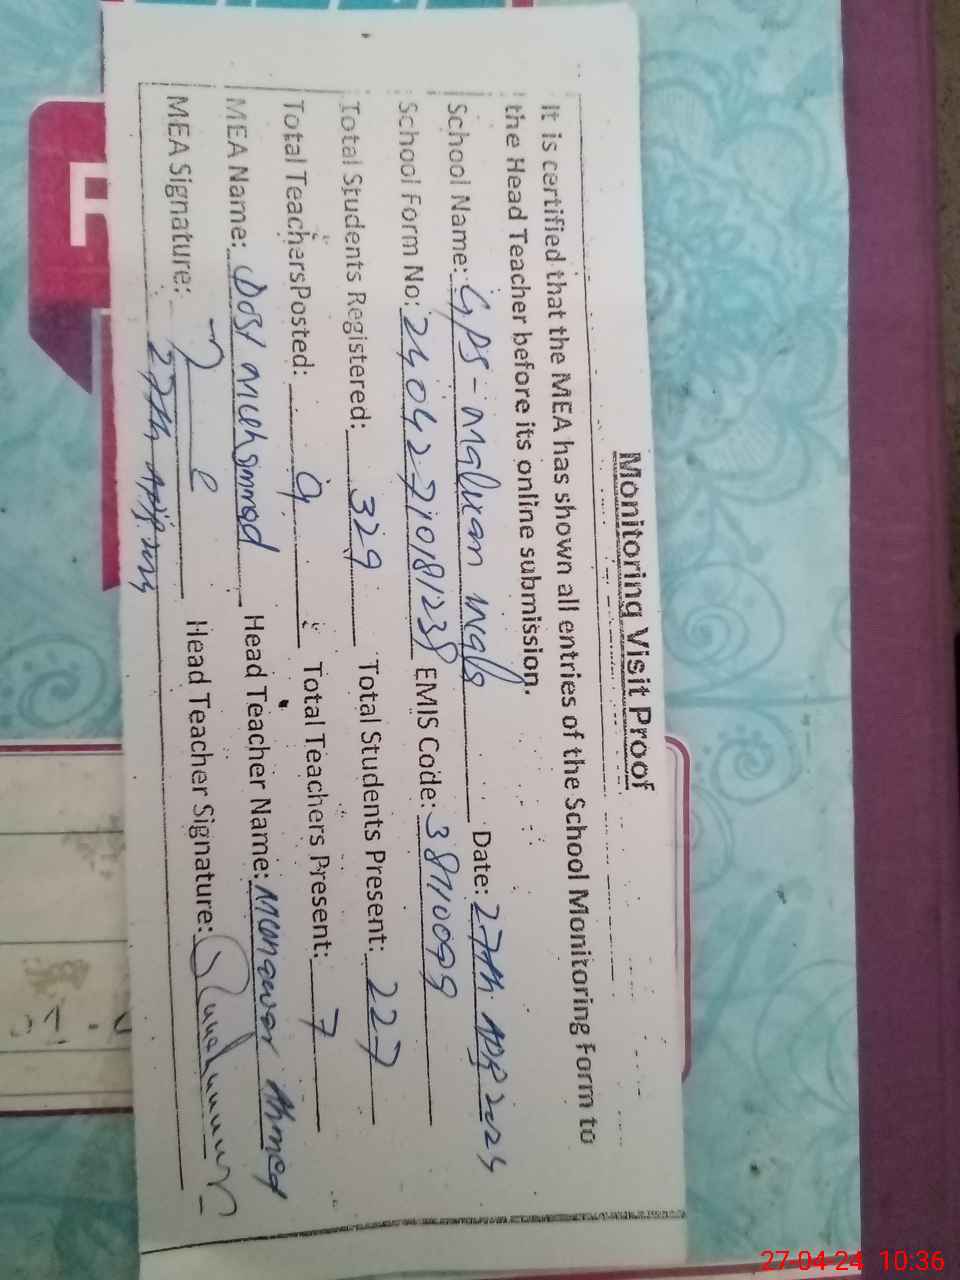 Monitoring Visit Proof
It is certified that the MEA has shown all entries of the School Monitoring Form to
the Head Teacher before its online submission.
School Name: GPS - Date: 27th APR 2024
School Form No: 240427710181238 EMIS Code: 38110099
Total Students Registered: 329 Total Students Present: 227
Total Teachers Posted: 9 Total Teachers Present: 7
MEA Name: Dost Muhammad Head Teacher Name: Munawar Ahmed
MEA Signature: Head Teacher Signature:
27th APR 2024
27-04-24 10:36